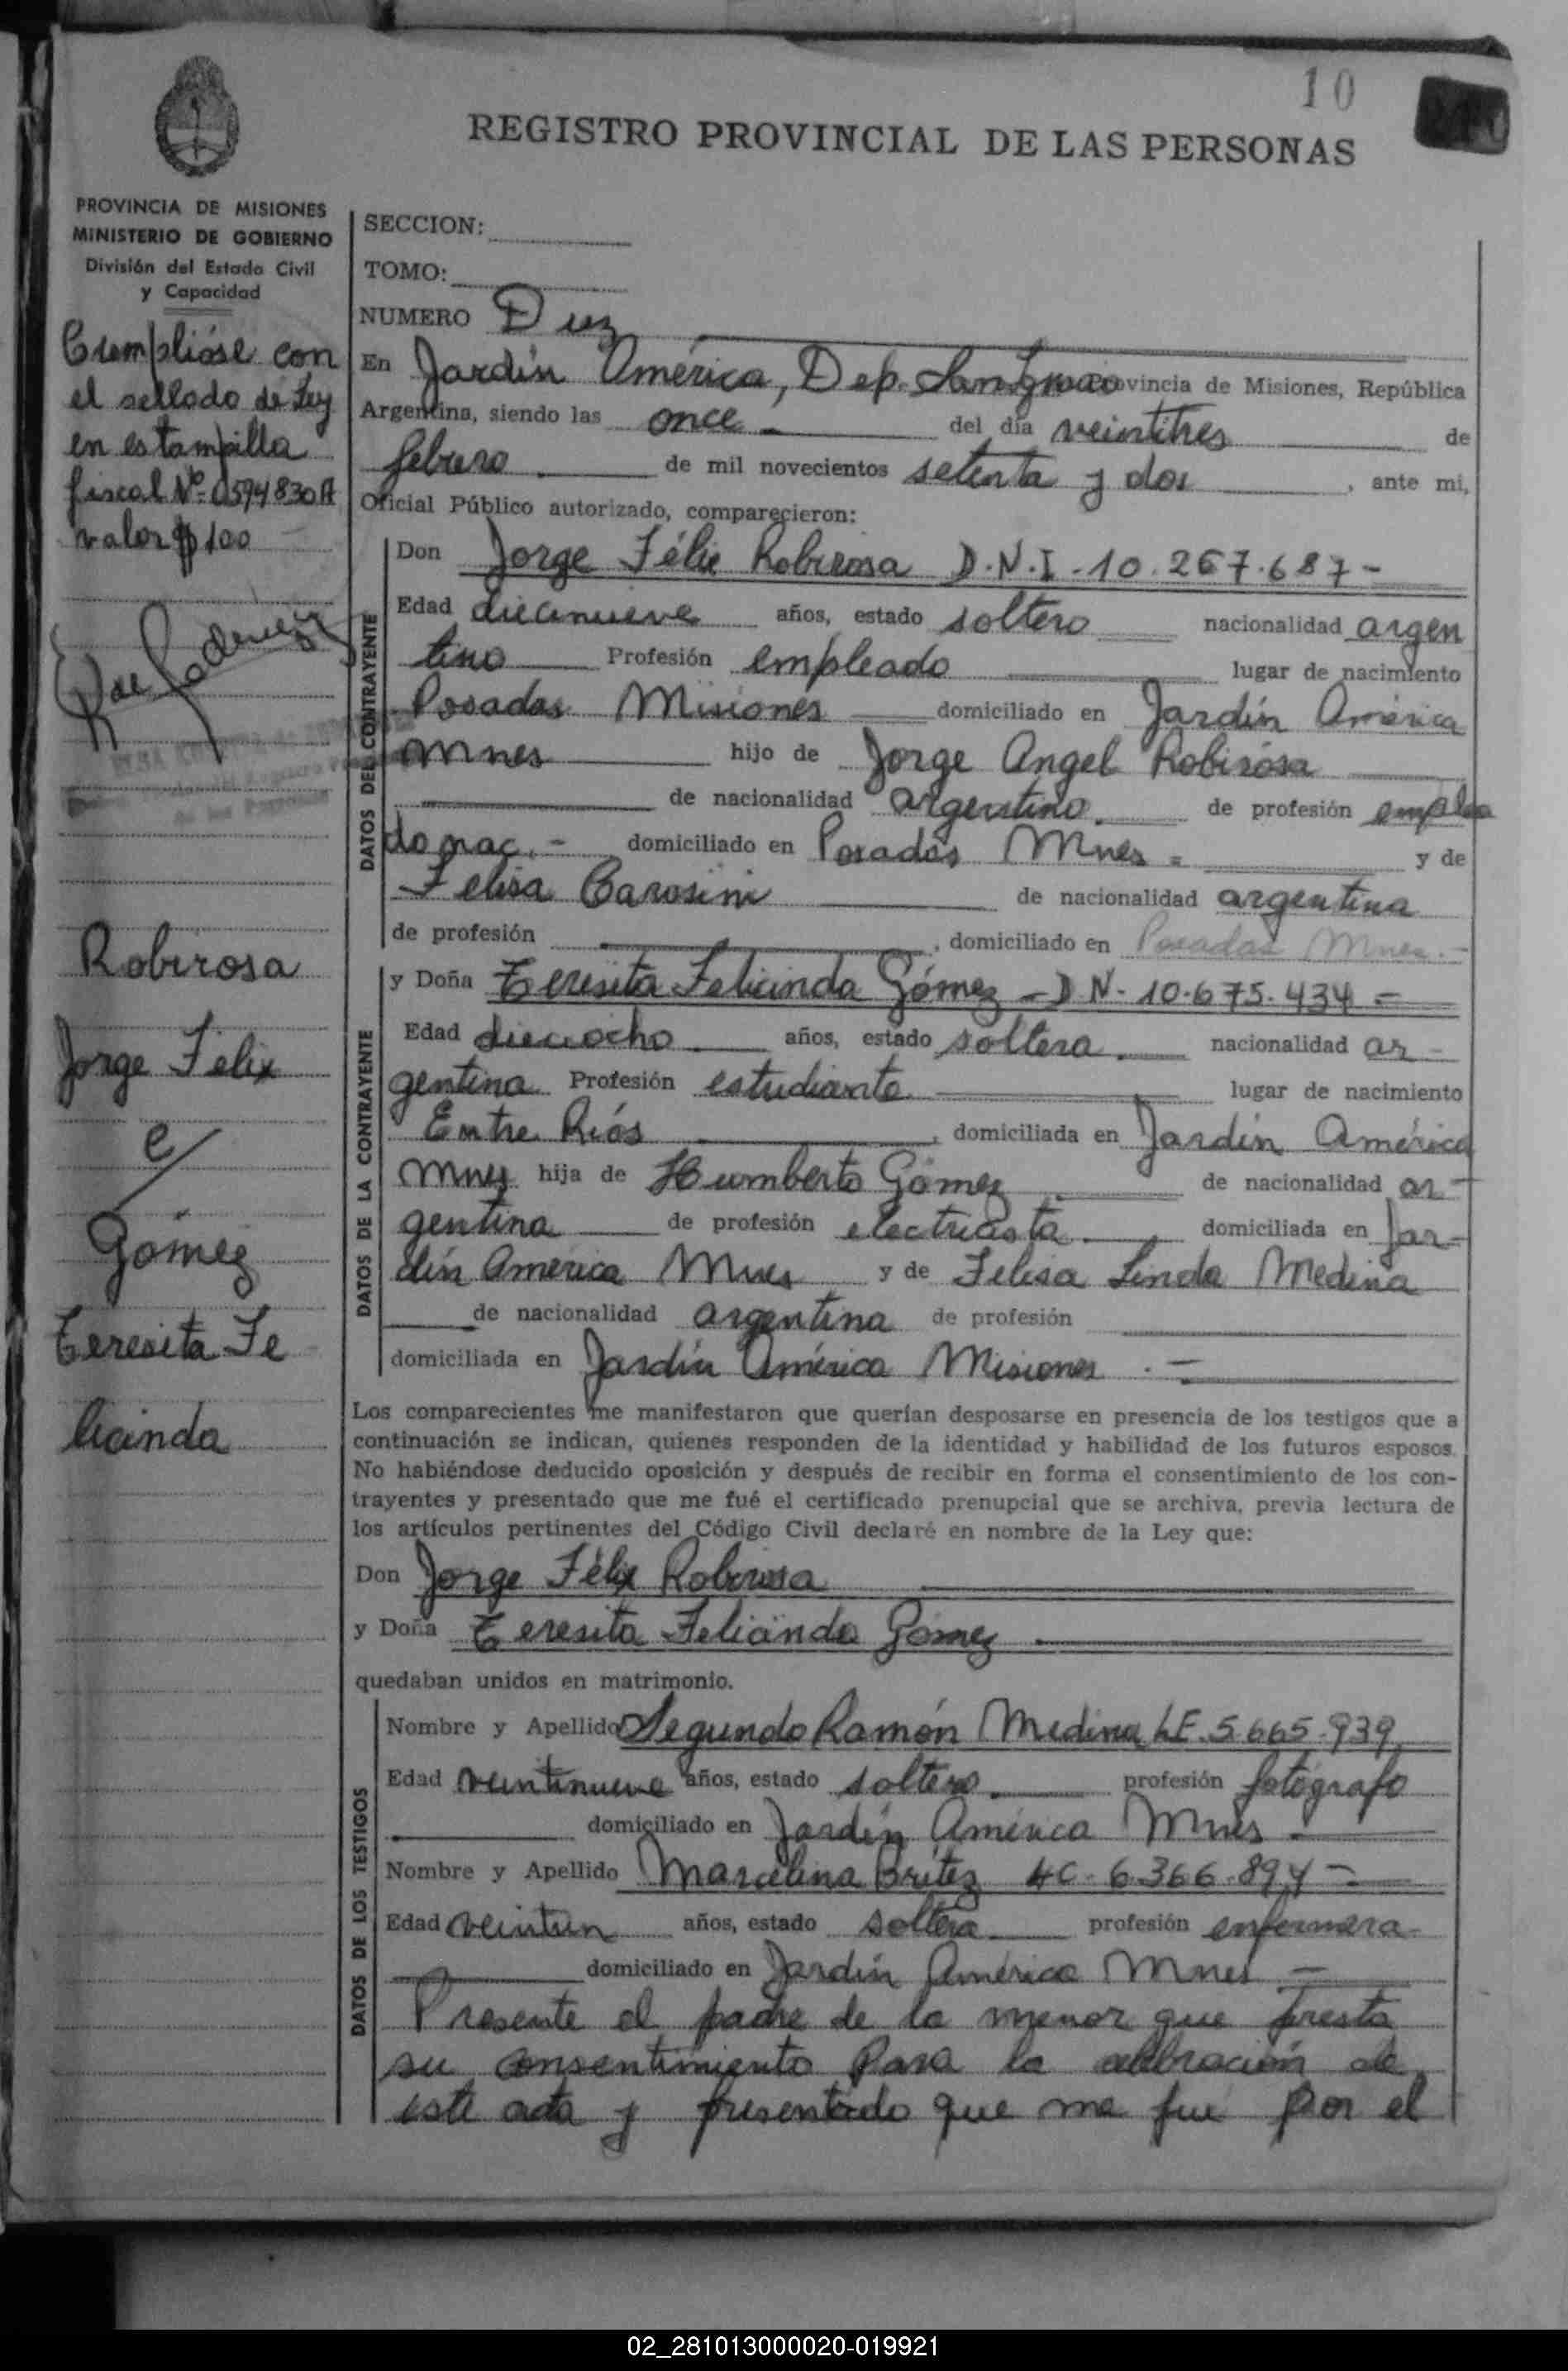 10
REGISTRO PROVINCIAL DE LAS PERSONAS
PROVINCIA DE MISIONES
MINISTERIO DE GOBIERNO
División del Estado Civil
y Capacidad
Cumplióse con
el sellado de Ley
en estampilla
fiscal Nº 0594830A
valor $ 100
Robirosa
Jorge Félix
e/
Gómez
Teresita Fe
licinda
SECCION:
TOMO:
NUMERO Diez
En Jardín América, Dep. San Ignacio Provincia de Misiones, República
Argentina, siendo las once del día veintitres de
febrero de mil novecientos setenta y dos, ante mi,
Oficial Público autorizado, comparecieron:
DATOS DEL CONTRAYENTE
Don Jorge Félix Robirosa D.N.I. 10.267.687-
Edad diecinueve años, estado soltero nacionalidad argen
tino Profesión empleado lugar de nacimiento
Posadas Misiones domiciliado en Jardín América
Mnes hijo de Jorge Angel Robirosa
de nacionalidad argentino. de profesión emplea
do nac. - domiciliado en Posadas Mnes = y de
Felisa Carosini de nacionalidad argentina
de profesión , domiciliado en Posadas Mnes. -
DATOS DE LA CONTRAYENTE
y Doña Teresita Felicinda Gómez - D N - 10.675.434 =
Edad dieciocho años, estado soltera. nacionalidad ar-
gentina Profesión estudiante lugar de nacimiento
Entre Ríos , domiciliada en Jardín América
Mnes hija de Humberto Gómez de nacionalidad ar-
gentina de profesión electricista domiciliada en Jar-
dín América Mnes y de Felisa Linda Medina
de nacionalidad argentina de profesión
domiciliada en Jardín América Misiones . -
Los comparecientes me manifestaron que querían desposarse en presencia de los testigos que a
continuación se indican, quienes responden de la identidad y habilidad de los futuros esposos.
No habiéndose deducido oposición y después de recibir en forma el consentimiento de los con-
trayentes y presentado que me fué el certificado prenupcial que se archiva, previa lectura de
los artículos pertinentes del Código Civil declaré en nombre de la Ley que:
Don Jorge Félix Robirosa
y Doña Teresita Felicinda Gómez
quedaban unidos en matrimonio.
DATOS DE LOS TESTIGOS
Nombre y Apellido Segundo Ramón Medina LE. 5.665.939
Edad veintinueve años, estado soltero. profesión fotógrafo
domiciliado en Jardín América Mnes -
Nombre y Apellido Marcelina Britez LC. 6.366.894 -
Edad veintiun años, estado soltera profesión enfermera-
domiciliado en Jardín América Mnes -
Presente el padre de la menor que presta
su consentimiento para la celebración de
este acta y presentado que me fué por el
02_281013000020-019921